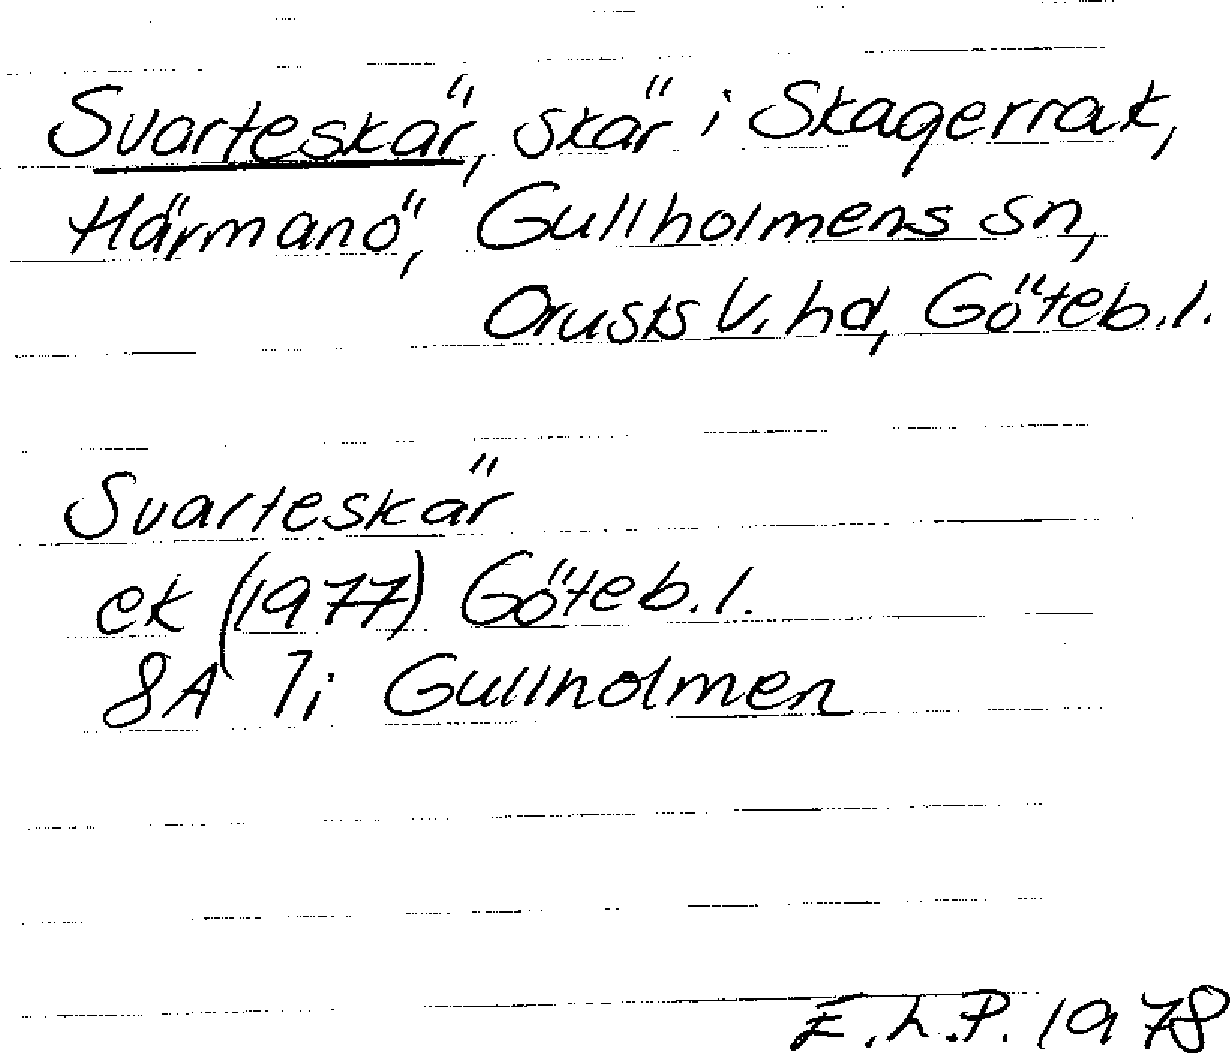 Svarteskär, skär i Skagerrak,
Härmanö, Gullholmens sn,
Orusts V. hd, Göteb.l.
Svarteskär
ek (1977) Göteb.l.
8A 7i Gullholmen
E.L.P. 1978